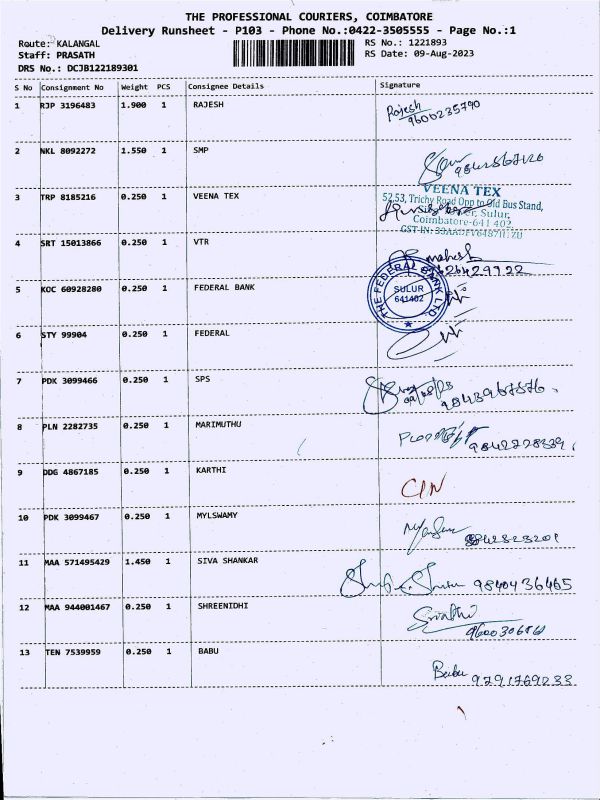 THE PROFESSIONAL COURIERS, COIMBATORE
Delivery Runsheet - P103 - Phone No.:0422-3505555 - Page No.:1
Route: KALANGAL
RS No.: 1221893
Staff: PRASATH
RS Date: 09-Aug-2023
DRS No.: DCJB122189301
S No Consignment No Weight PCS Consignee Details Signature
1 RJP 3196483 1.900 1 RAJESH Rajesh
9600235790
2 NKL 8092272 1.550 1 SMP
3 TRP 8185216 0.250 1 VEENA TEX
VEENA TEX
52,53, Trichy Road Opp to Old Bus Stand,
Sulur,
Coimbatore-641 402
4 SRT 15013866 0.250 1 VTR mahesh
5 KOC 60928280 0.250 1 FEDERAL BANK
THE FEDERAL BANK LTD.
SULUR
641402
6 STY 99904 0.250 1 FEDERAL
7 PDK 3099466 0.250 1 SPS
09/08/23
9843967876
8 PLN 2282735 0.250 1 MARIMUTHU
9842228339
9 DDG 4867185 0.250 1 KARTHI
10 PDK 3099467 0.250 1 MYLSWAMY
9842823201
11 MAA 571495429 1.450 1 SIVA SHANKAR
9840436465
12 MAA 944001467 0.250 1 SHREENIDHI
13 TEN 7539959 0.250 1 BABU
Babu 9791769233